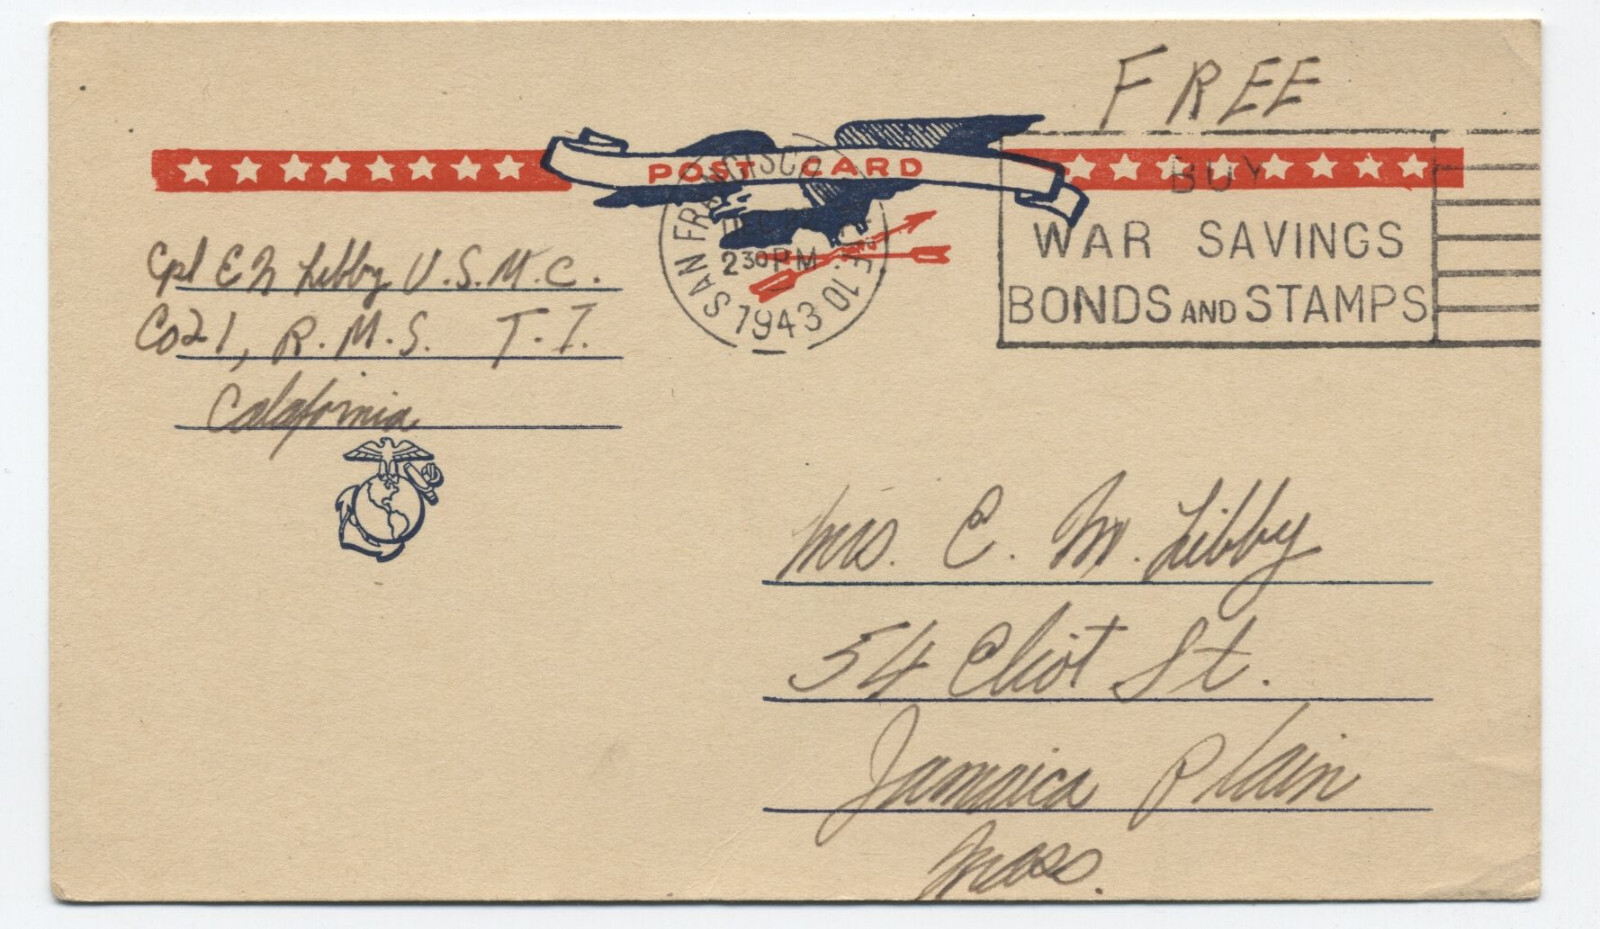 FREE
POST CARD
SAN FRANCISCO
230 PM
1943
10
BUY
WAR SAVINGS
BONDS AND STAMPS
Cpl E N Libby U.S.M.C.
Co 21, R.M.S. T.I.
Calafornia
Mrs. C. M. Libby
54 Eliot St.
Jamaica Plain
Mass.